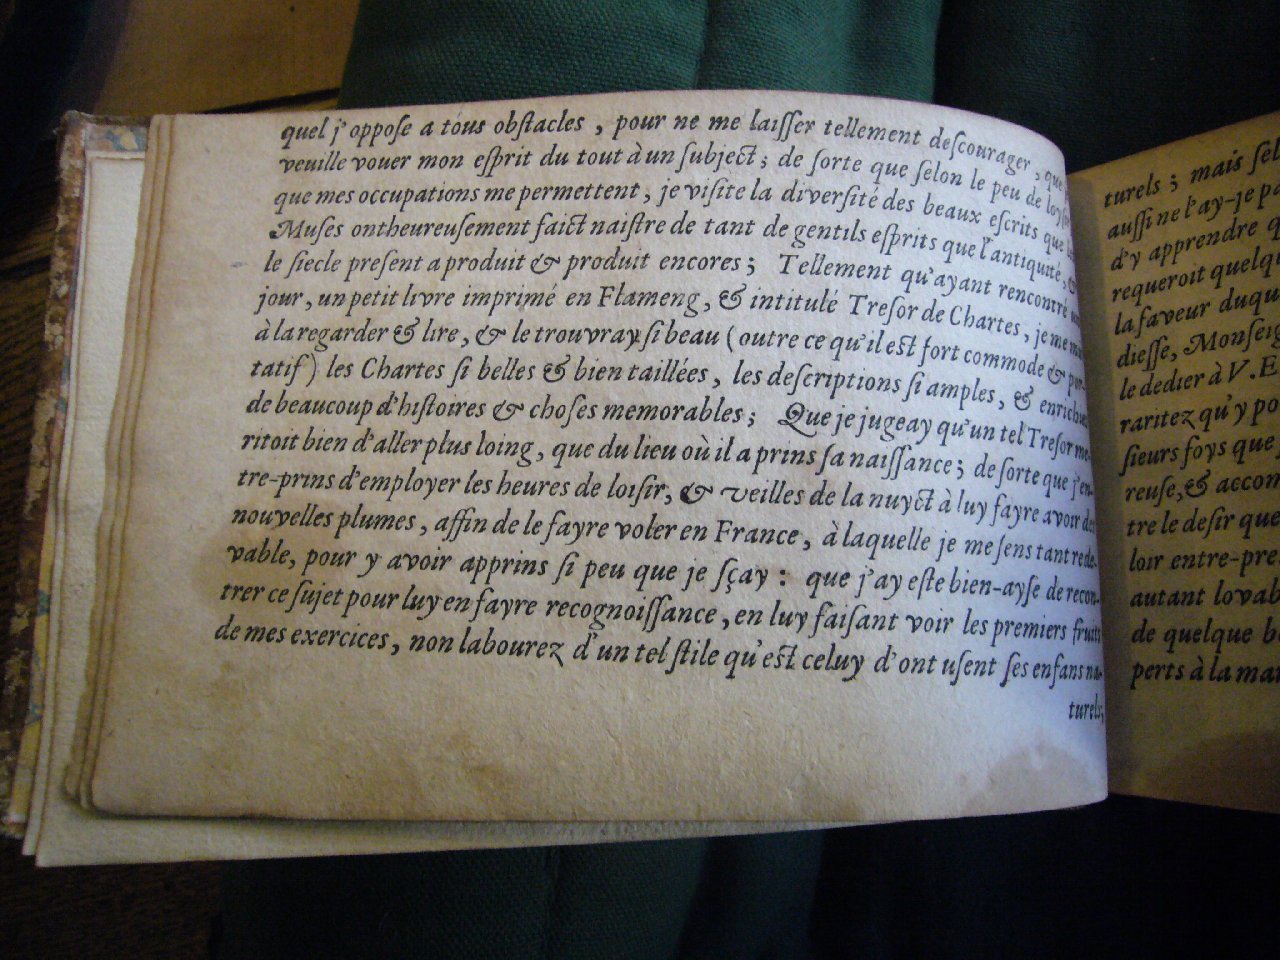 quel j'oppose a tous obstacles, pour ne me laisser tellement descourager, que
veuille vouer mon esprit du tout à un subject; de sorte que selon le peu de loysir
que mes occupations me permettent, je visite la diversité des beaux escrits que les
Muses ont heureusement faict naistre de tant de gentils esprits que l'antiquité, &
le siecle present a produit & produit encores; Tellement qu'ayant rencontré un
jour, un petit livre imprimé en Flameng, & intitulé Tresor de Chartes, je me mis
à la regarder & lire, & le trouvray si beau (outre ce qu'il est fort commode & por-
tatif) les Chartes si belles & bien taillées, les descriptions si amples, & enrichies
de beaucoup d'histoires & choses memorables; Que je jugeay qu'un tel Tresor me-
ritoit bien d'aller plus loing, que du lieu où il a prins sa naissance; de sorte que j'en-
tre-prins d'employer les heures de loisir, & veilles de la nuyct à luy fayre avoir des
nouvelles plumes, affin de le fayre voler en France, à laquelle je me sens tant rede-
vable, pour y avoir apprins si peu que je sçay : que j'ay este bien-ayse de recon-
trer ce sujet pour luy en fayre recognoissance, en luy faisant voir les premiers fruits
de mes exercices, non labourez d'un tel stile qu'est celuy d'ont usent ses enfans na-
turels;
turels; mais sel
aussi ne l'ay-je p
d'y apprendre q
requeroit quelqu
la faveur duqu
diesse, Monseig
le dedier à V. E
raritez qu'y po
sieurs foys que
reuse, & accom
tre le desir que
loir entre-pre
autant lovab
de quelque b
perts à la ma